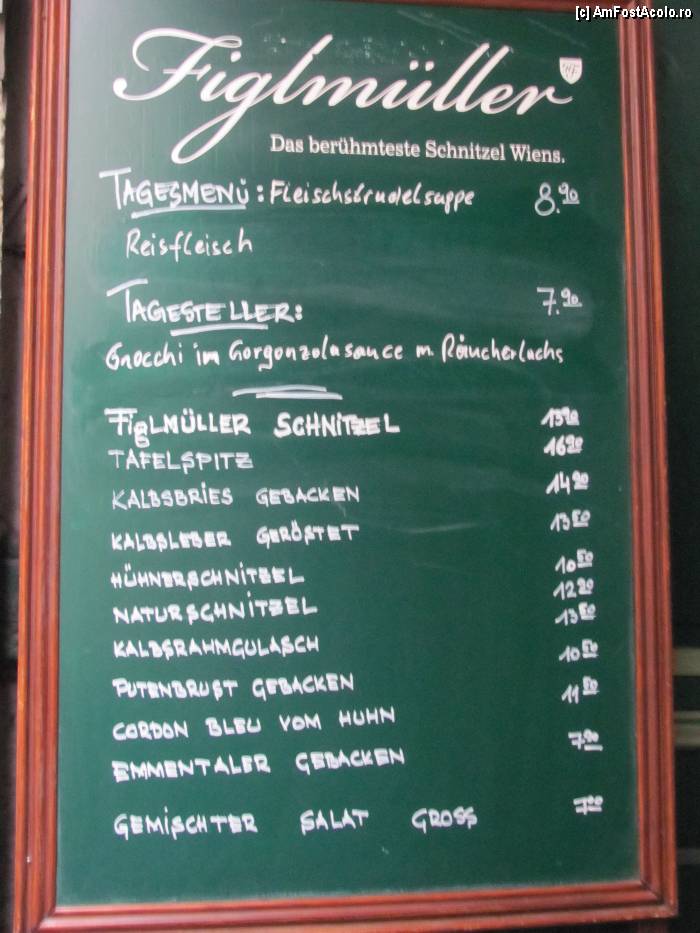 [c] AmFostAcolo.ro
Figlmüller
Das berühmteste Schnitzel Wiens.
TAGESMENÜ: Fleischstrudelsuppe 8.90
Reisfleisch
TAGESTELLER: 7.90
Gnocchi im Gorgonzolasauce m. Räucherlachs
FiglMÜLLER SCHNITZEL 13 90
TAFELSPITZ 16 90
KALBSBRIES GEBACKEN 14 90
KALBSLEBER GERÖSTET 13 50
HÜHNERSCHNITZEL 10 50
NATURSCHNITZEL 12 90
KALBSRAHMGULASCH 13 50
PUTENBRUST GEBACKEN 10 50
CORDON BLEU VOM HUHN 11 50
EMMENTALER GEBACKEN 7.90
GEMISCHTER SALAT GROSS